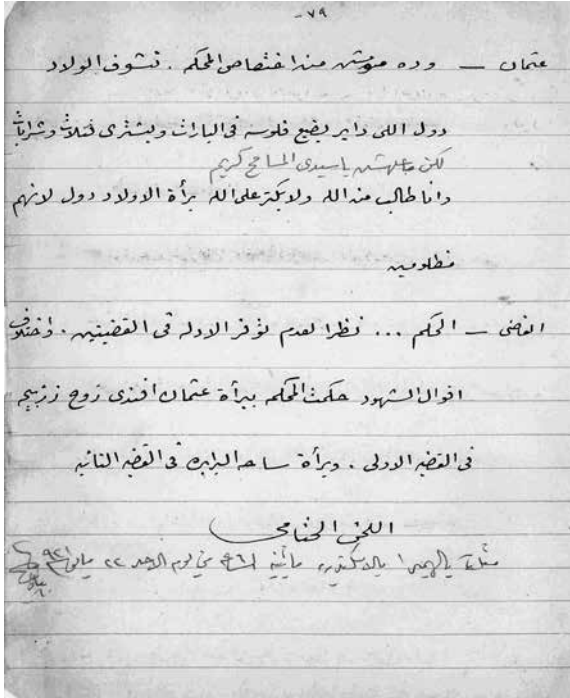 - ٧٩ -
عثمان — وده موش من اختصاص المحكمه . نشوف الولاد
دول اللى داير يضيع فلوسه فى البارات ويشترى فنلات وشرابات
لكن معلهش ياسيدى المسامح كريم
وانا طالب من الله ولا يكتر على الله برأة الاولاد دول لانهم
مظلومين
القاضى — الحكم ... نظرا لعدم توفر الادله فى القضيتين . واختلاف
اقوال الشهود حكمت المحكمه ببرأة عثمان افندى زوج زربيحه
فى القضيه الاولى . وبرأة ساحه البرابره فى القضيه الثانيه
اللحن الختامى
يوم الاحد ٢٢